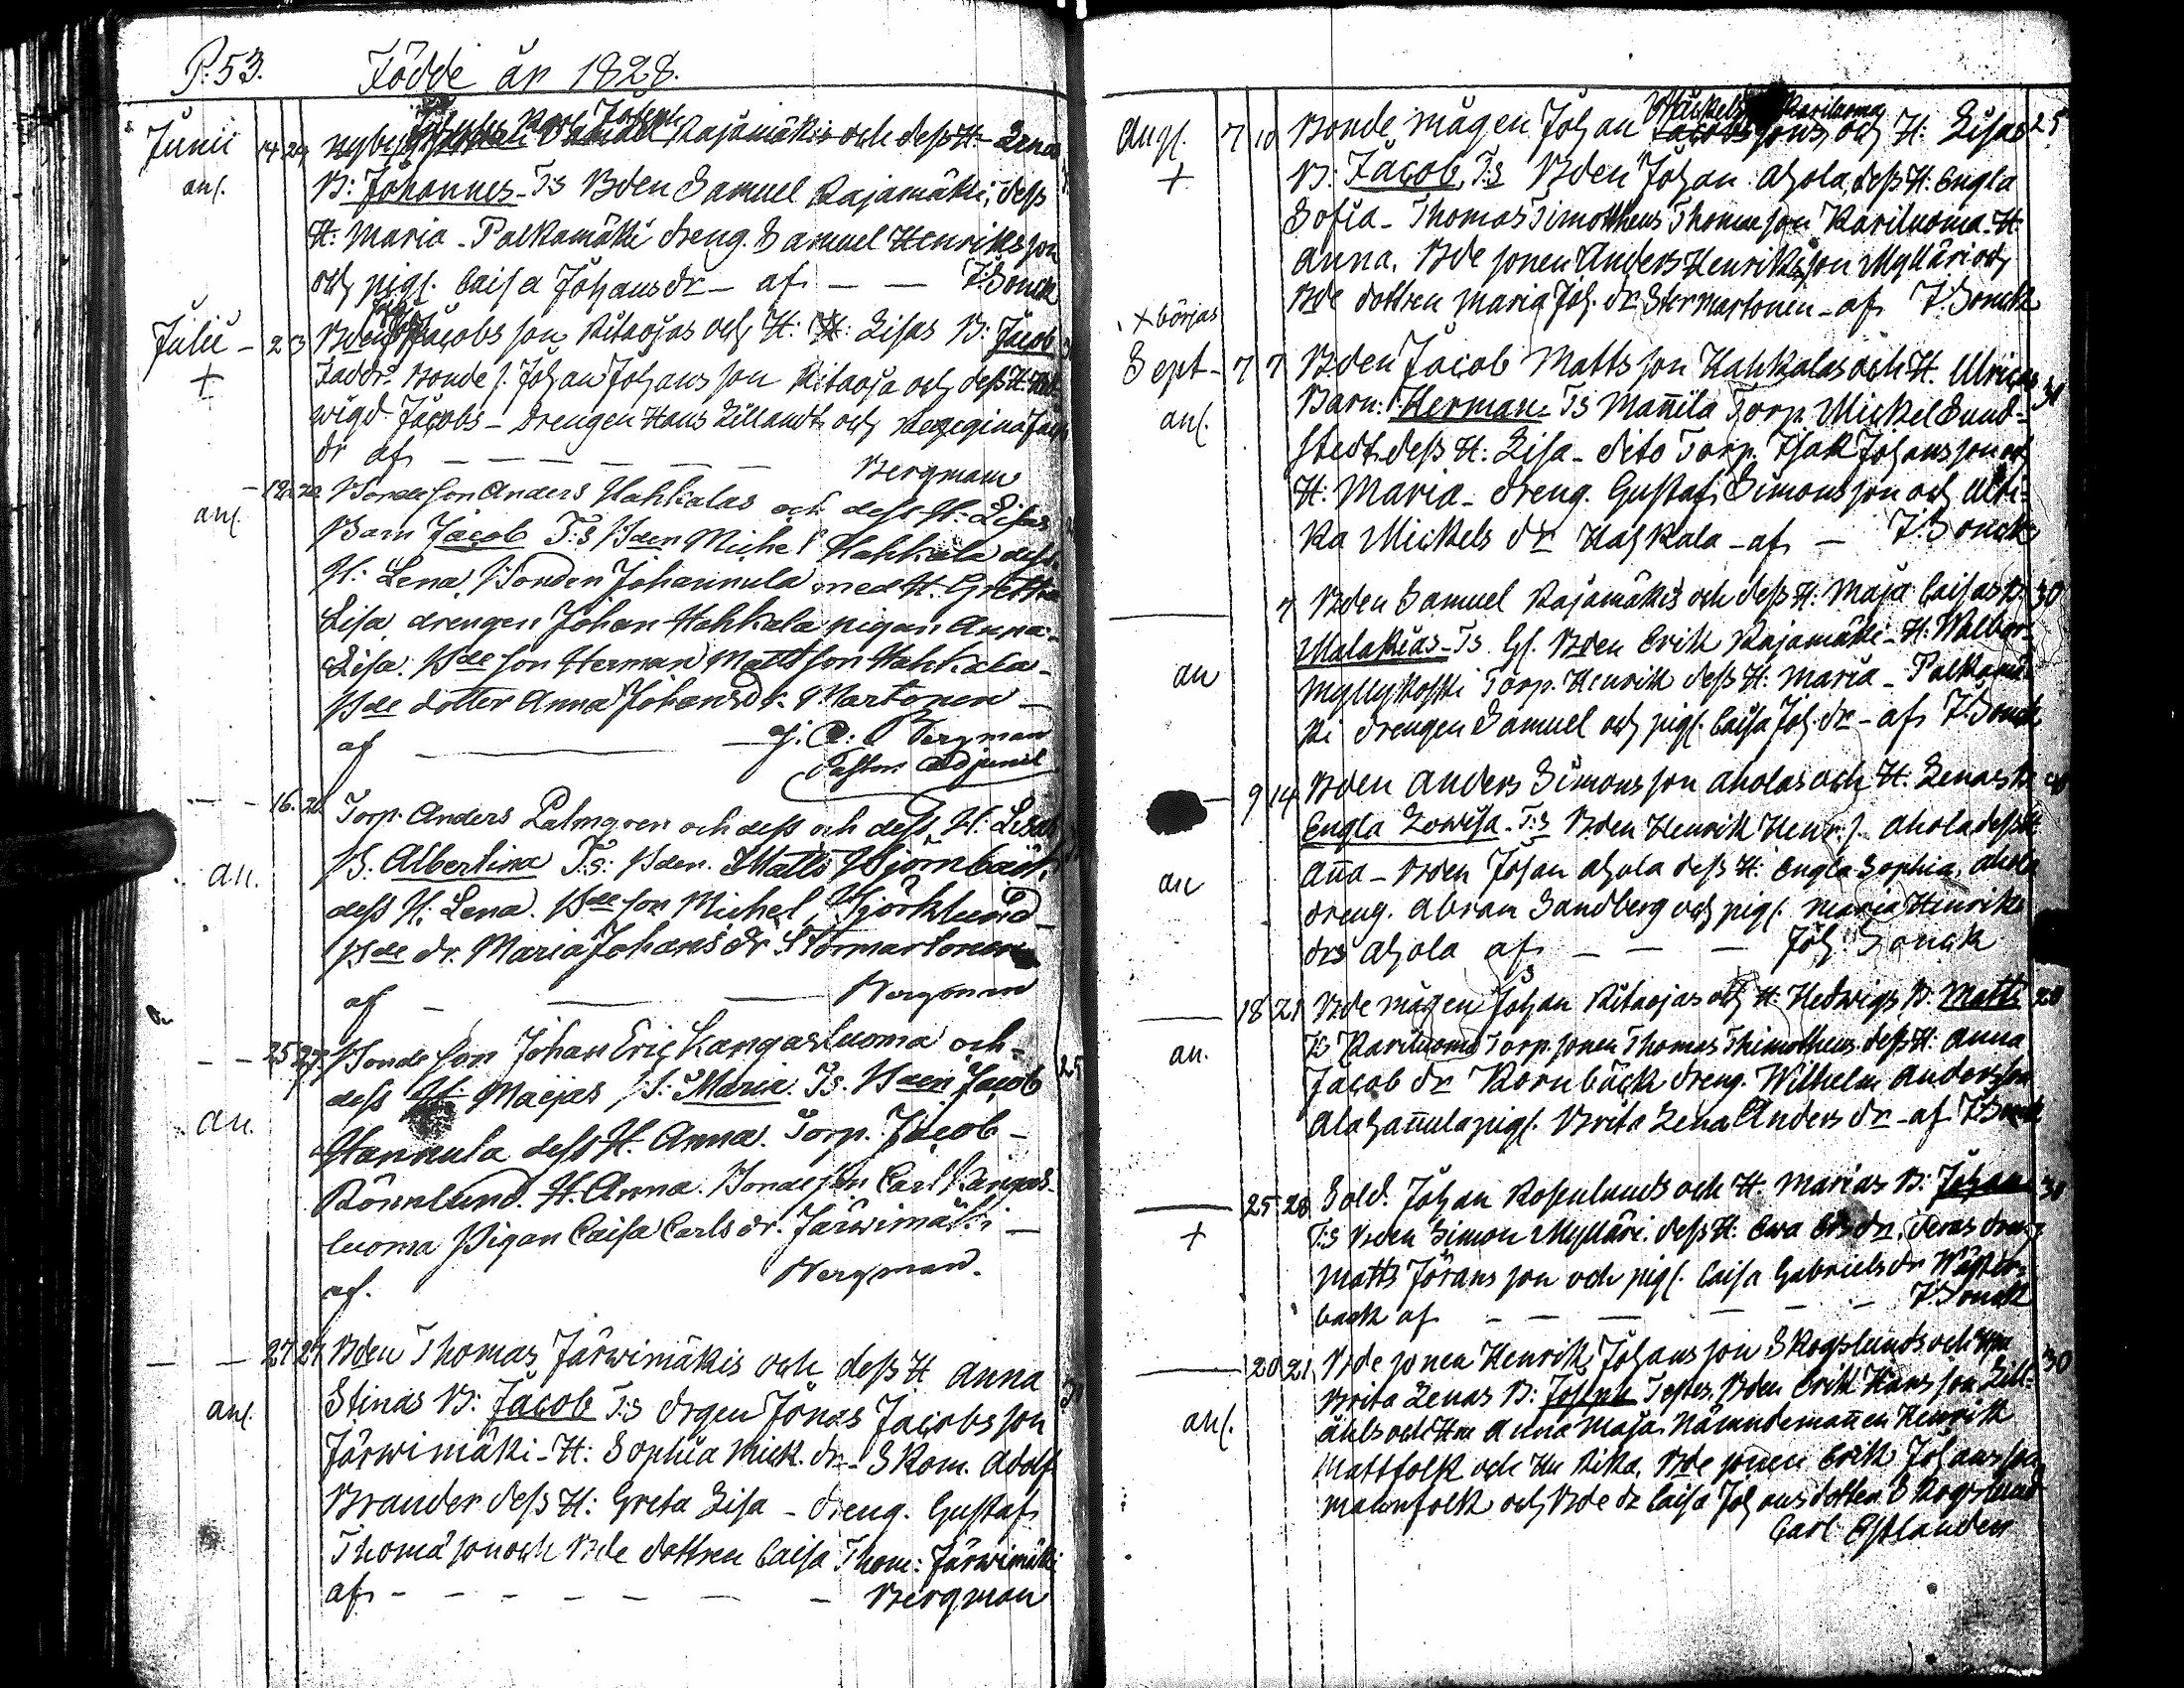 P. 53. Födde år 1828.
Junii 14 24 Rajamäkis och dess H. Lena
anf. B: Johannes - T:s Bden Samuel Rajamäki, dess
H: Maria - Palkamäki dreng. Samuel Henriksson
och pig. Caisa Johansdr - af - - J: Sonck
Julii - 2 3 Bden Jacobsson Ritaojas och H: Lisas B: Jacob
+ Faddr. Bonde s. Johan Johansson Ritaoja och dess H: Hed-
wigd Jacobs - Drengen Hans Lillandt och
dr af - - - - - Bergman
- 12 20 Bondeson Anders Hahkalas och dess H: Lisas
anf. Barn Jacob T:s Bden Michel Hahkala dess
H: Lena, Bonden Johannula med H. Gretha
Lisa, drengen Johan Hahkala pigan Anna-
Lisa. Bde son Herman Mattsson Hahkala -
Bde dotter Anna Johansdr. Martonen -
af - J. A: Bergman
Pastors Adjunct
- - 16. 20 Torp. Anders Palmgren och dess och dess H: Lisas
an. B: Albertina T:s: Bden. Matts Björnbäck,
dess H: Lena. Bde son Michel Björklund
Bde dr. Maria Johans dr Stormartonen
af - - - Bergman
- - 25 27. Bonde son Johan Eric Kangasluoma och - 25
dess H: Majas B: Maria. T:s. Bden Jacob
an. Hannula dess H. Anna. Torp. Jacob -
Rönnlund. H. Anna. Bondeson Carl Kangas-
luoma Pigan Caisa Carls dr. Järwimäki -
af. Bergman.
- - 27 27 Bden Thomas Järwimäkis och dess H Anna
anf. Stinas B: Jacob T:s drgen Jonas Jacobsson
Järwimäki - H: Sophia Mick. dr - Skom. Adolf
Brander dess H: Greta Lisa - dreng. Gustaf
Thomasson och Bde dottren Caisa Thom: Järwimäki
af - - - - - - - Bergman
Aug. 7 10 Bonde mågen Johan Mickels Kariluoma Jacobssons och H: Lisas 25
+ B: Jacob, T:s Bden Johan Ahola, dess H: Engla
Sofia - Thomas Timottheus Thomasson Kariluoma - H.
Anna. Bde sonen Anders Henriksson Mylläri och
Bde dottren Maria Joh. dr Stormartonen - af J: Sonck
+ börjas
Sept - 7 7 Bden Jacob Mattsson Hahkalas och H. Ulricas 31
anf. Barn: Herman - T:s Mañila Torp. Mickel Sund-
stedt dess H: Lisa - dito Torp. Isak Johansson och
H: Maria - dreng. Gustaf Simonsson och Ulri-
ka Mickels dr Hahkala - af - J: Sonck
- 7 Bden Samuel Rajamäkis och dess H: Maja Caisas B. 30
an Malakias - T:s Gl. Bden Erik Rajamäki - H: Walbor-
Myllykoski Torp. Henrik dess H: Maria - Palkamä-
ki drengen Samuel och pig. Caisa Joh. dr - af J: Sonck
- 9 14 Bden Anders Simonsson Aholas och H: Lenas B.
Engla Lowisa. T:s Bden Henrik Henr. s. Ahola dess H:
an Aña - Bden Johan Ahola dess H: Engla Sophia, Ahola
dreng. Abram Sandberg och pig. Maria Henriks
drs Ahola af - - - Joh: Sonck
- 18 21 Bde mågen Johan Ritaojas och H: Hedwigs B. Matts 20
an. T:s Kariluoma Torp. sonen Thomas Thimotheus dess H: Anna
Jacob dr Kornbäck dreng. Wilhelm Andersson
Alahañula pig. Brita Lena Anders dr - af J: Sonck
- 25 28 Sold. Johan Rosenlunds och H: Marias B: Johan 31
+ T:s Bden Simon Mylläri. dess H: Ewa Ers dr, deras dreng
Matts Jöransson och pig. Caisa Gabrielsdr Wäster-
back af - - - - - - J: Sonck
- 20 21 Bde sonen Henrik Johansson Skogslunds och Hu 30
Brita Lenas B: Joseph Testes. Bden Erik Hansson Lill-
anf. åhls och Hu Anna Maja. Nämndemañen Henrik
Mattfolk och Hu Rika. Bde sonen Erik Johansson
Mattfolk och Bde dr Caisa Johansdotter Skogslund
Carl Estlander